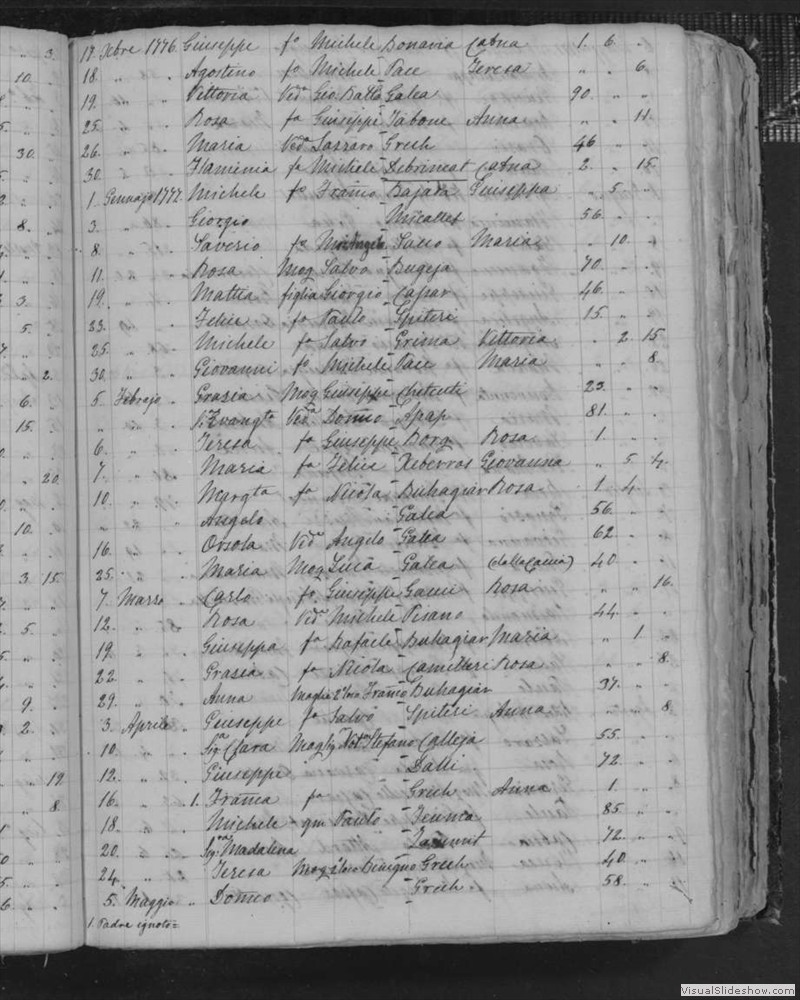 3. 17. Xbre 1776. Giuseppe fo Michele Bonavia Catna 1. 6. "
10. 18 " " Agostino fo Michele Pace Teresa " " 6.
19. " " Vittoria Veda Gio Batta Galea 90. " "
25. " " Rosa fa Giuseppe Tabone Anna " " 11.
30. 26. " " Maria Veda Lazzaro Grech 46 " "
30. " " Flaminia fa Michele Debrincat Catna 2. " 15
1. Gennajo 1777. Michele fo Franco Bajada Giuseppa " 5 "
8. 3. " " Giorgio Micallef 56. " "
8. " " Saverio fo Sacco Maria " 10. "
11. " " Rosa Mog Salvo Bugeja 70. " "
3. 19. " " Mattia figlia Giorgio Capar 46. " "
5. 23. " " Felice fo Paulo Spiteri 15. " "
25. " " Michele fo Salvo Grima Vittoria " 2. 15
2. 30. " " Giovanni fo Michele Pace Maria " " 8.
6. 5. Febrajo " Grazia Mog Giuseppe Chetcuti 23. " "
15. " " " Evangta Veda Domco Apap 81. " "
6. " " Teresa fa Giuseppe Borg Rosa 1. " "
20. 7. " " Maria fa Felice Xiberras Giovanna " 5. 4.
10. " " Margta fa Nicola Buhagiar Rosa 1. 4. "
10. " " " Angelo Galea 56. " "
16. " " Orsola Veda Angelo Galea 62. " "
3. 15. 25. " " Maria Mog Luca Galea (dalla Caccia) 40. " "
7. Marzo " Carlo fo Giuseppe Gauci Rosa " " 16.
5. 12. " " Rosa Veda Michele Pisano 44. " "
19. " " Giuseppa fa Rafaele Buhagiar Maria " 1. "
22. " " Grazia fa Nicola Camilleri Rosa " " 8.
9. 29. " " Anna Moglie 2 bus Franco Buhagiar 37. " "
2. 3. Aprile " Giuseppe fo Salvo Spiteri Anna " " 8
10. " " Siga Clara Mog Sig Noto Stefano Calleja 55. " "
19. 12. " " Giuseppe Dalli 72. " "
8. 16. " " 1. Franca fa Grech Anna 1. " "
18. " " Michele qm Paulo Teuma 85. " "
20. " " Siga Madalena Zammit 72. " "
24. " " Teresa Mog 2 bus Benigno Grech 40. " "
6. 5. Maggio " Domco Grech 58. " "
1. Padre ignoto=
VisualSlideshow.com